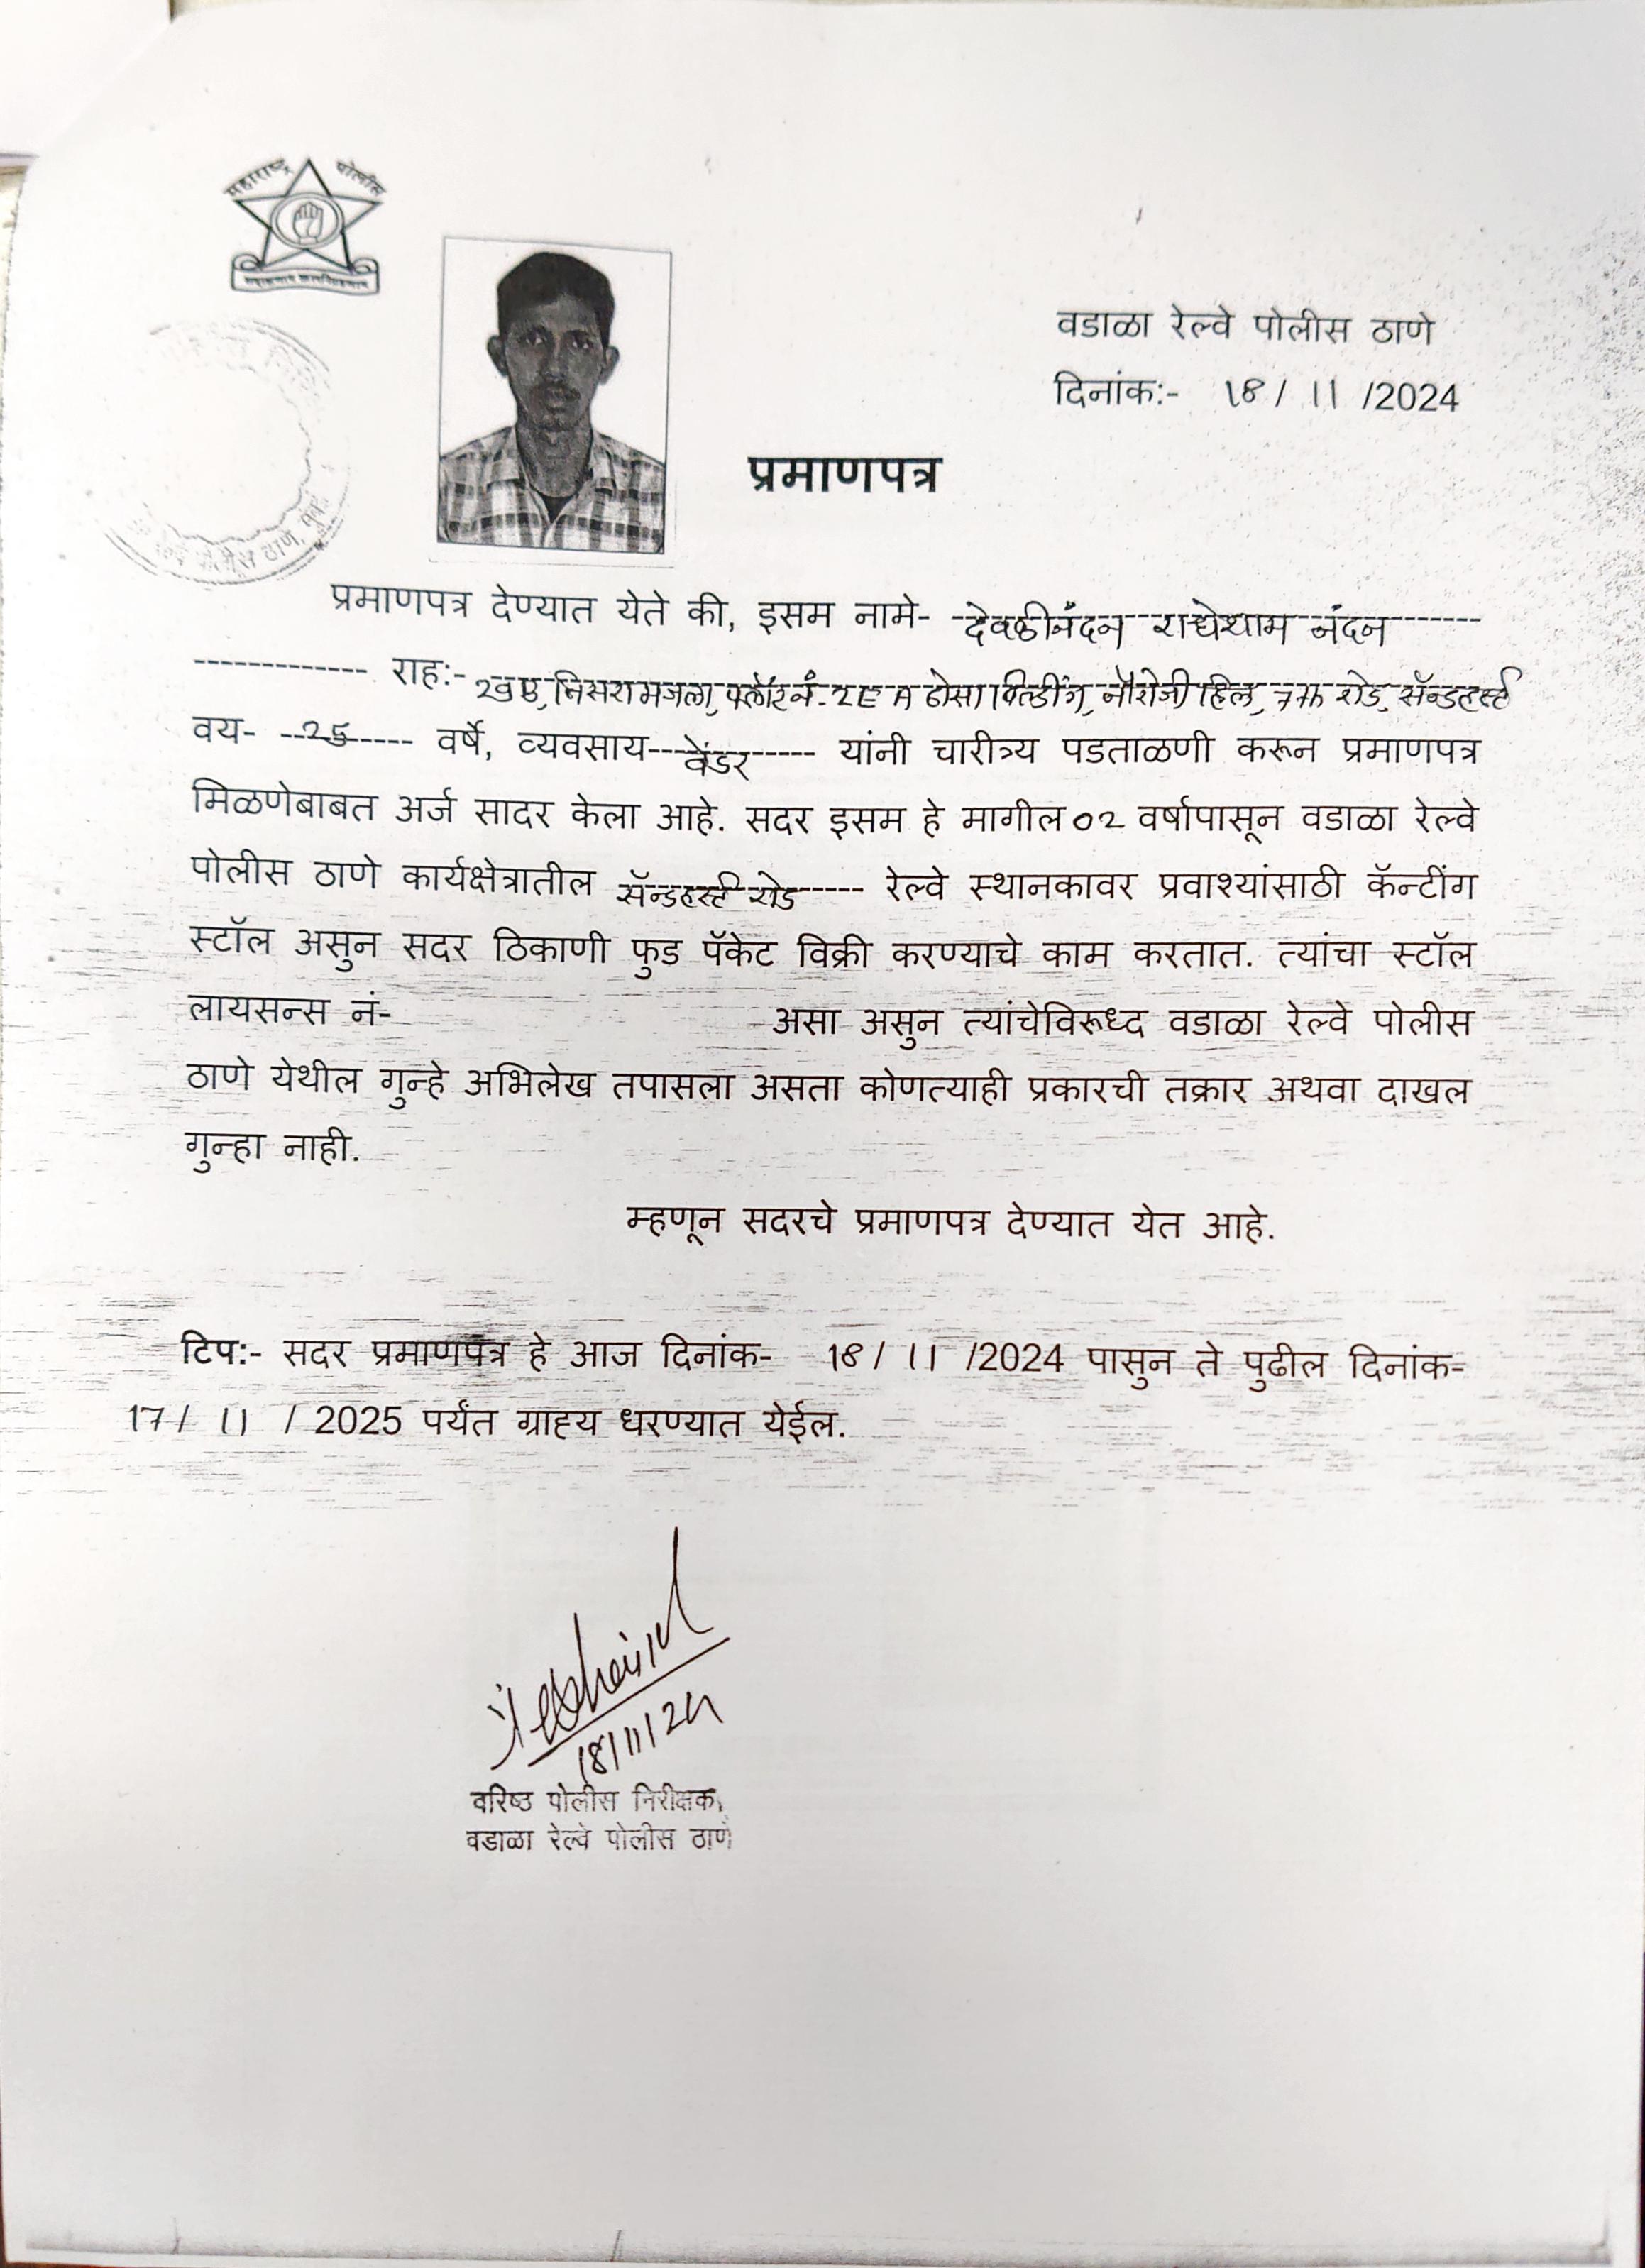 महाराष्ट्र पोलीस
वडाळा रेल्वे पोलीस ठाणे
दिनांक:- 18 / 11 /2024
प्रमाणपत्र
पोलीस ठाणे, मुंबई
प्रमाणपत्र देण्यात येते की, इसम नामे- देवकीनंदन राधेशाम नंदन
राह:- निसरा मजला, फ्लॅट नं. 2E A ढोसा बिल्डींग, नौरोजी हिल, 7th रोड, सॅन्डहर्स्ट
वय- 25 वर्षे, व्यवसाय वेंडर यांनी चारीत्र्य पडताळणी करून प्रमाणपत्र
मिळणेबाबत अर्ज सादर केला आहे. सदर इसम हे मागील 02 वर्षापासून वडाळा रेल्वे
पोलीस ठाणे कार्यक्षेत्रातील सॅन्डहर्स्ट रोड रेल्वे स्थानकावर प्रवाश्यांसाठी कॅन्टींग
स्टॉल असुन सदर ठिकाणी फुड पॅकेट विक्री करण्याचे काम करतात. त्यांचा स्टॉल
लायसन्स नं- असा असुन त्यांचेविरूध्द वडाळा रेल्वे पोलीस
ठाणे येथील गुन्हे अभिलेख तपासला असता कोणत्याही प्रकारची तक्रार अथवा दाखल
गुन्हा नाही.
म्हणून सदरचे प्रमाणपत्र देण्यात येत आहे.
टिप:- सदर प्रमाणपत्र हे आज दिनांक- 18 / 11 /2024 पासुन ते पुढील दिनांक-
17 / 11 / 2025 पर्यंत ग्राह्य धरण्यात येईल.
18/11/24
वरिष्ठ पोलीस निरीक्षक,
वडाळा रेल्वे पोलीस ठाणे